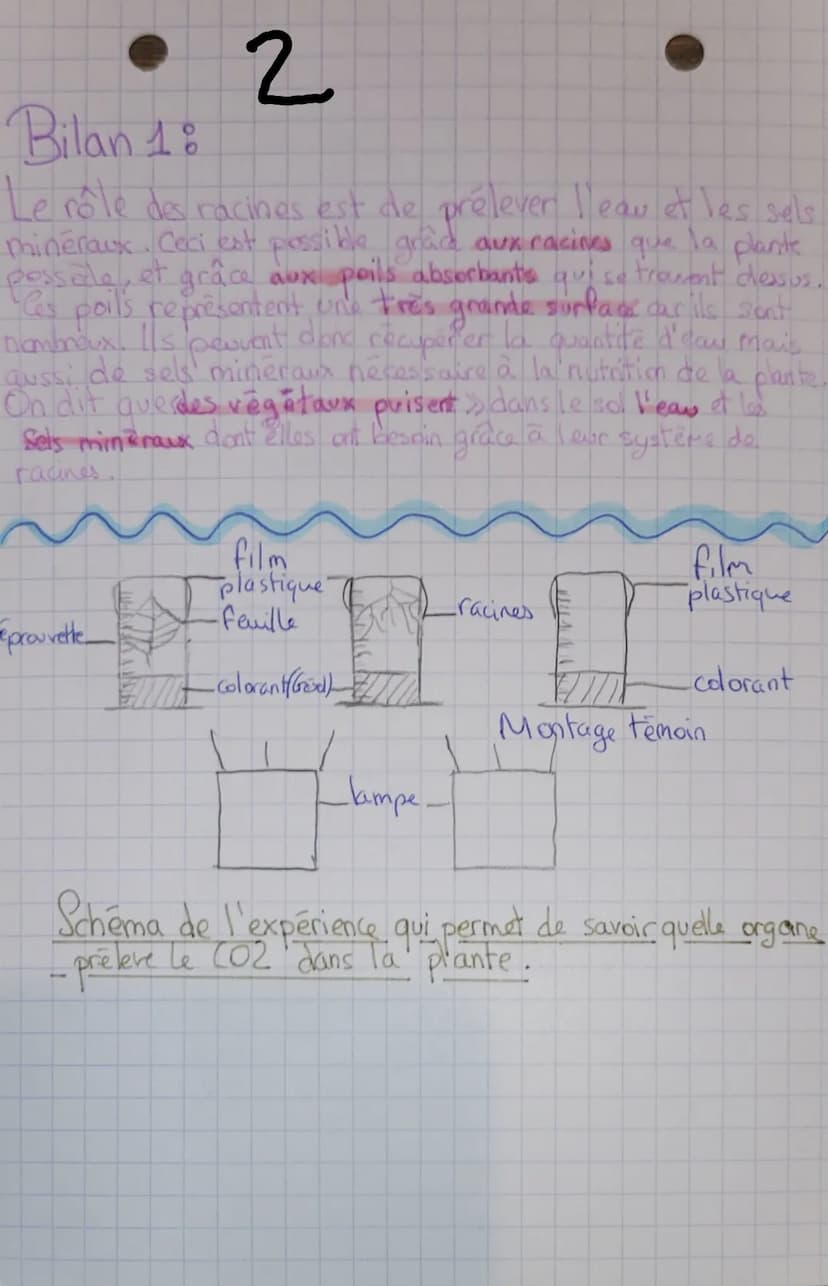 2
Bilan 1:
Le rôle des racines est de prélever l'eau et les sels
minéraux. Ceci est possible grâce aux racines que la plante
possède, et grâce aux poils absorbants qui se trouvent dessus.
Ces poils représentent une très grande surface car ils sont
nombreux. Ils peuvent donc récupérer la quantité d'eau mais
aussi de sels minéraux nécessaire à la nutrition de la plante.
On dit que des végétaux puisent » dans le sol l'eau et les
sels minéraux dont elles ont besoin grâce à leur système de
racines.
film
plastique
feuille
éprouvette
colorant
racines
film
plastique
colorant
Montage témoin
lampe
Schéma de l'expérience qui permet de savoir quelle organe
prélève le CO2 dans la plante.